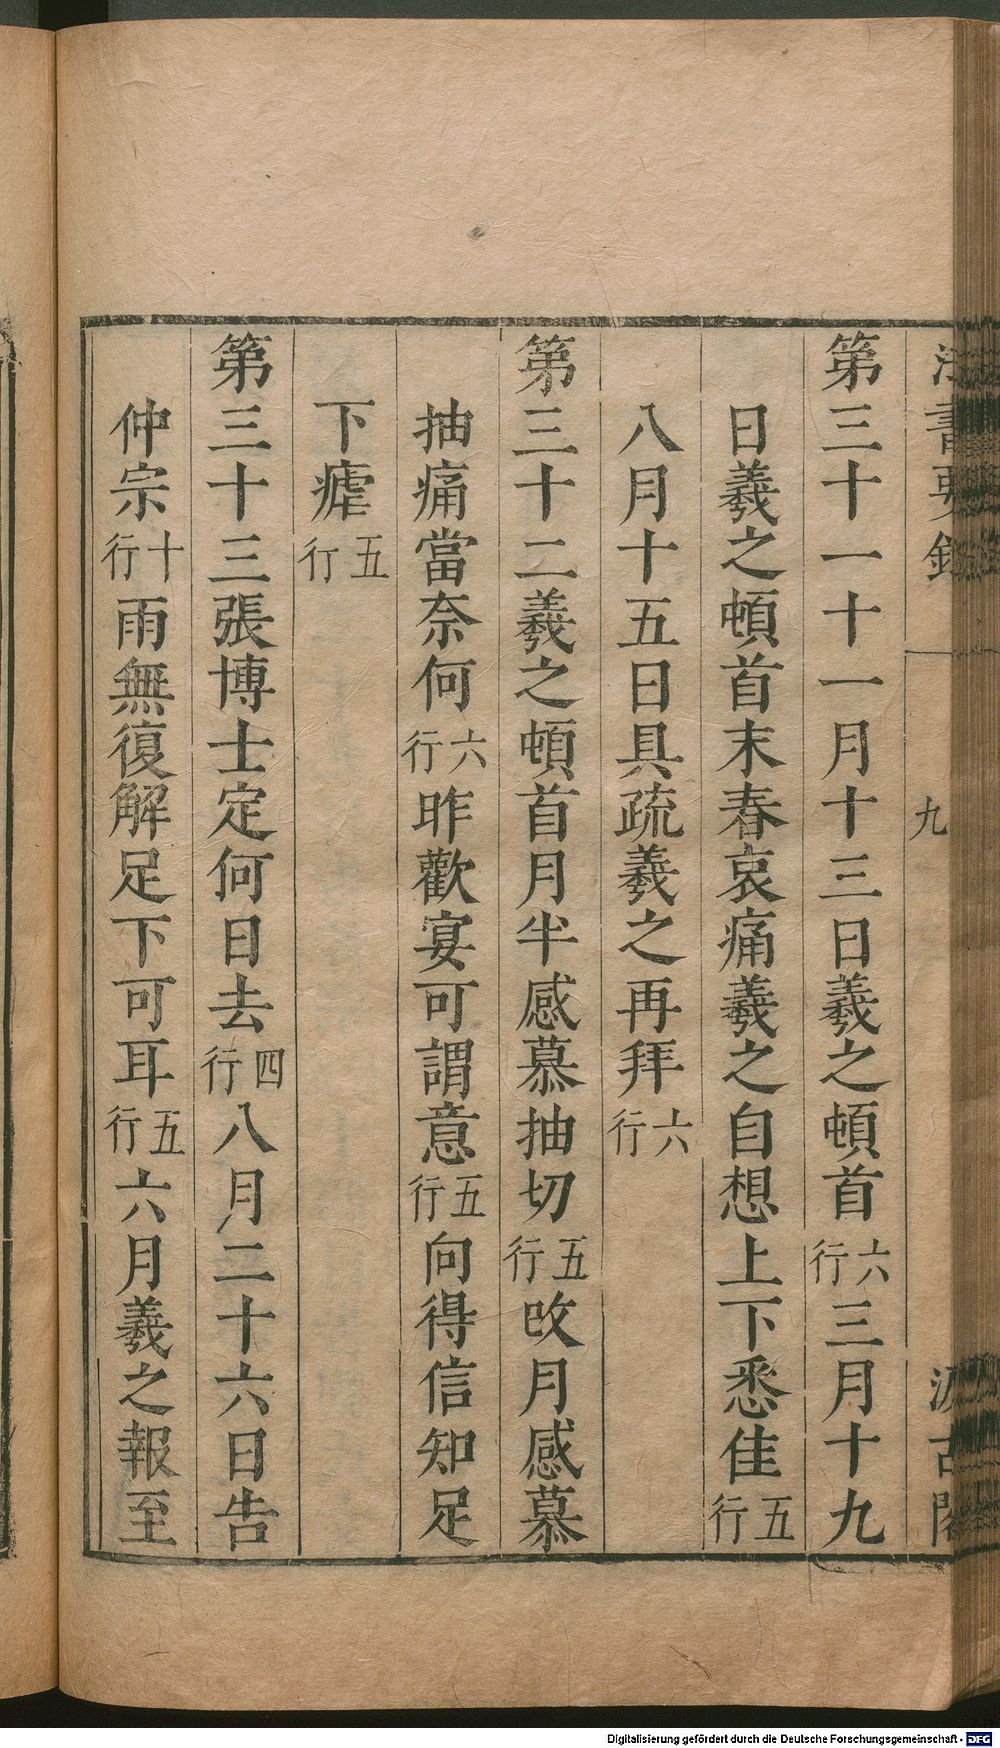 法書要錄 九 汲古閣
第三十一十一月十三日羲之頓首六行三月十九
日羲之頓首末春哀痛羲之自想上下悉佳五行
八月十五日具疏羲之再拜六行
第三十二羲之頓首月半感慕抽切五行改月感慕
抽痛當奈何六行昨歡宴可謂意五行向得信知足
下瘧五行
第三十三張博士定何日去四行八月二十六日告
仲宗十行雨無復解足下可耳五行六月羲之報至
Digitalisierung gefördert durch die Deutsche Forschungsgemeinschaft - DFG